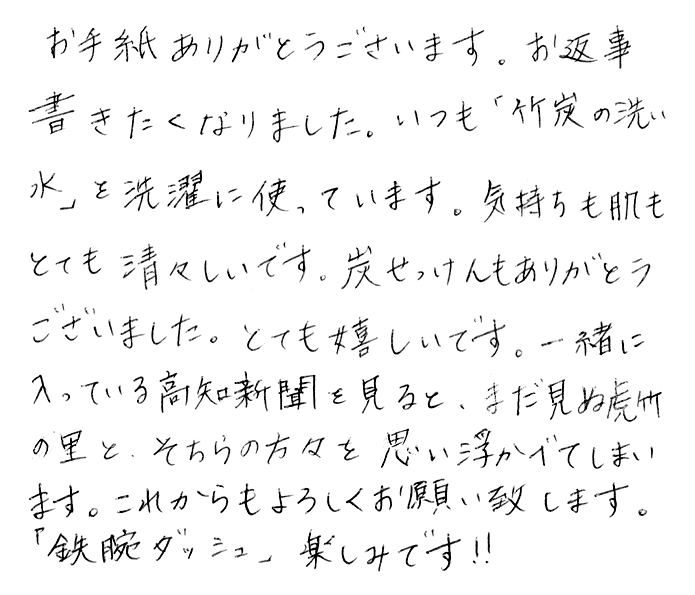 お手紙ありがとうございます。お返事
書きたくなりました。いつも「竹炭の洗い
水」を洗濯に使っています。気持ちも肌も
とても清々しいです。炭せっけんもありがとう
ございました。とても嬉しいです。一緒に
入っている高知新聞を見ると、まだ見ぬ虎竹
の里と、そちらの方々を思い浮かべてしまい
ます。これからもよろしくお願い致します。
「鉄腕ダッシュ」楽しみです!!